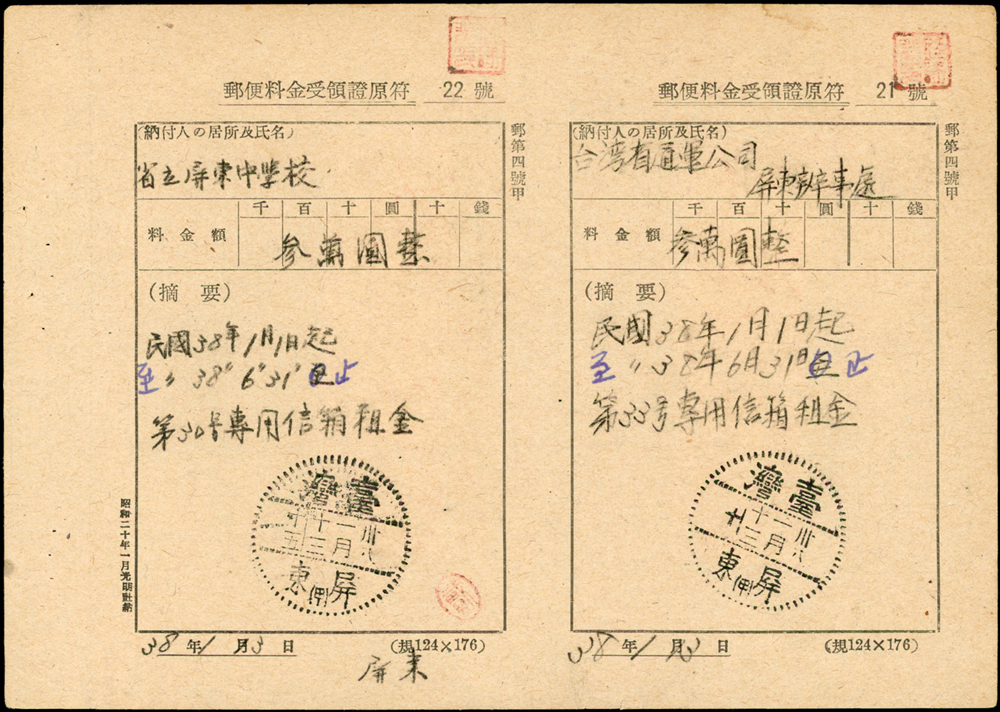 郵便料金受領證原符 22 號
(納付人の居所及氏名)
省立屏東中學校
千 百 十 圓 十 錢
料金額
参萬圓整
(摘要)
民國38年1月1日起
至〃38〃6〃31〃止
第30号専用信箱租金
臺灣
卅八
一月
十三
廿五
屏東(甲)
38年1月3日
(規124×176)
屏東
郵第四號甲
昭和二十年一月光明社納
郵便料金受領證原符 21 號
(納付人の居所及氏名)
台湾省通運公司
屏東辦事處
千 百 十 圓 十 錢
料金額
参萬圓整
(摘要)
民國38年1月1日起
至〃38年6月31日止
第33号専用信箱租金
臺灣
卅八
一月
十三
廿
屏東(甲)
38年1 13
(規124×176)
郵第四號甲